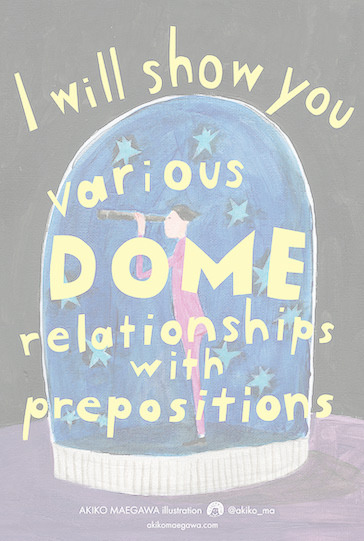 I will show you
various
DOME
relationships
with
prepositions
AKIKO MAEGAWA illustration @akiko_ma
akikomaegawa.com